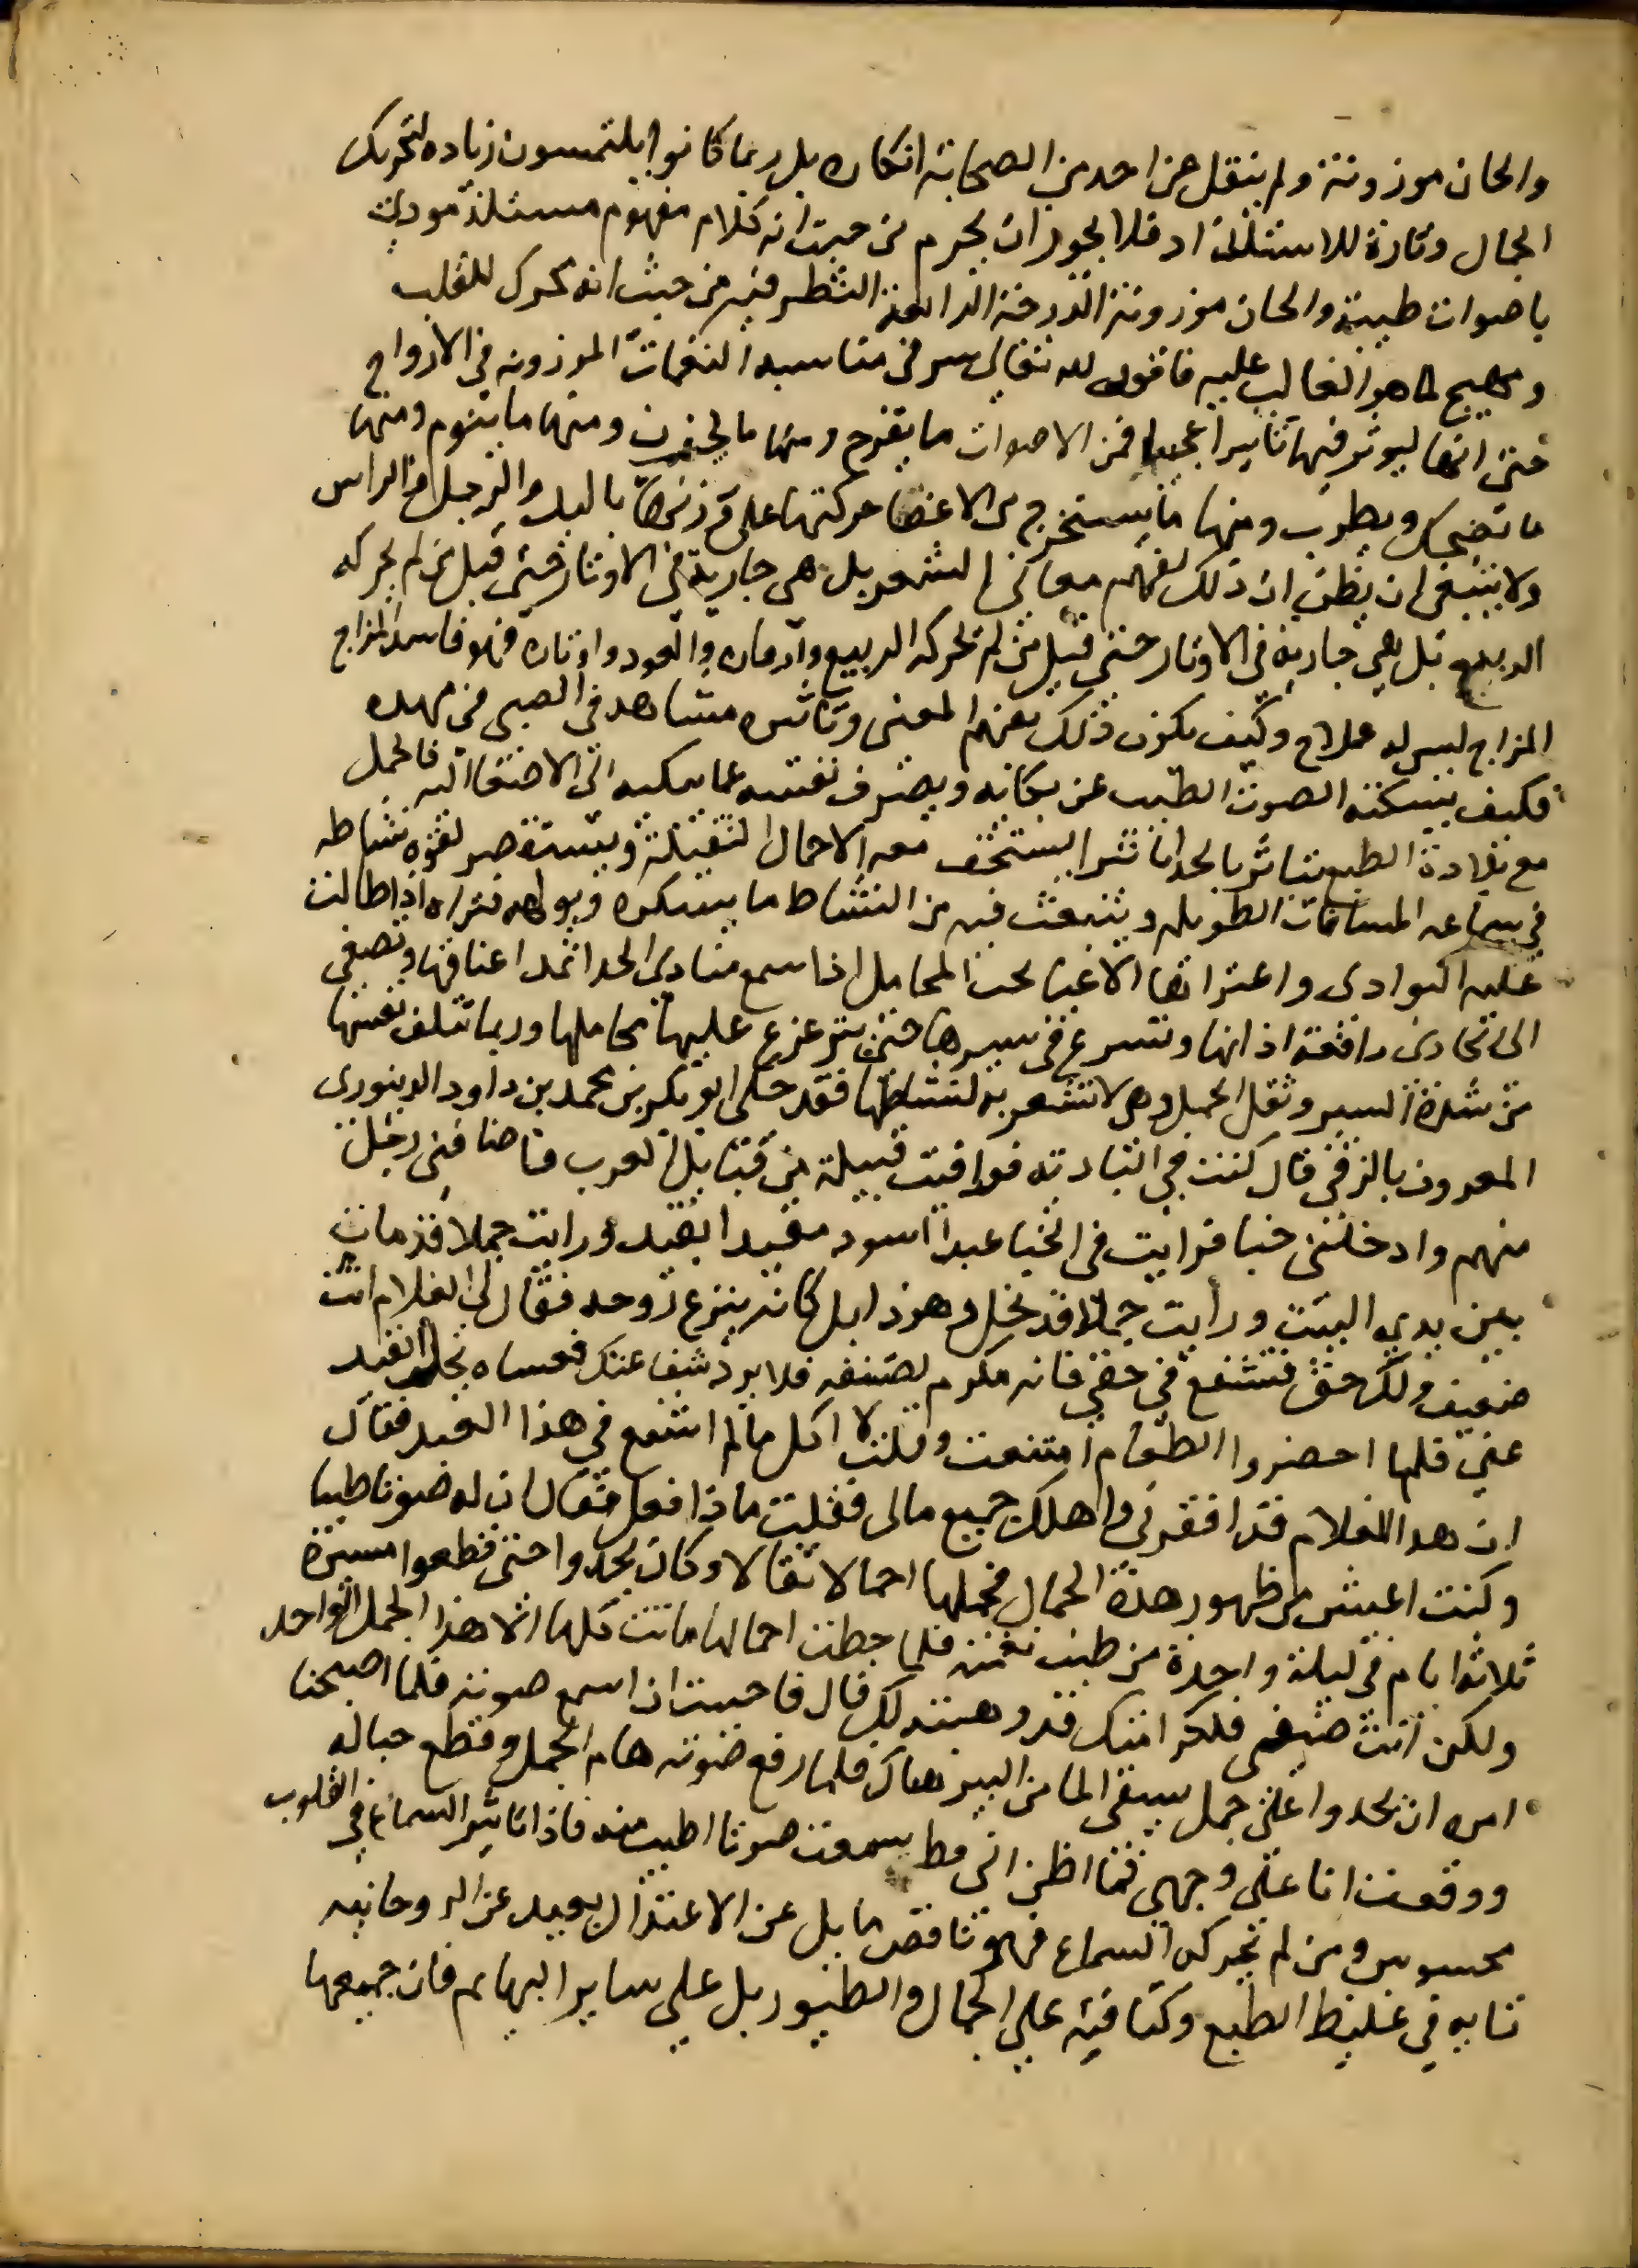 والحان موزونة ولم ينقل عن احد من الصحابة انكاره بل ربما كانوا يلتمسون زياده لتحريك
الجمال وتارة للاستلذاذ فلا يجوز ان يحرم من حيث انه كلام مفهوم مستلذ مودي
باصوات طيبة والحان موزونة الدرجة الرابعة النظر فيه من حيث انه محرك للقلب
ومهيج لما هو الغالب عليه فاقول لله تعالى سر في مناسبة النغمات الموزونه في الارواح
حتى انها ليوثر فيها تاثيرا عجيبا فمن الاصوات ما يفرح ومنها ما يحزن ومنها ما ينوم ومنها
ما يضحك ويطرب ومنها ما يستخرج من الاعضا حركتها على وزنها باليد والرجل والراس
ولا ينبغي ان يظن ان ذلك لفهم معاني الشعر بل هي جارية في الاوتار حتى قيل من لم يحركه
الربيع بل هي جارية في الاوتار حتى قيل من لم يحركه الربيع وازهاره والعود واوتاره فهو فاسد المزاج
المزاج ليس له علاج وكيف يكون ذلك بفهم المعنى وتاثيره مشاهد في الصبي في مهده
فكيف يسكته الصوت الطيب عن بكائه ويصرف نفسه عما يبكيه الى الاصغا اليه فالجمل
مع بلادة الطبع يتاثر بالحدا تاثرا يستخف معه الاحمال الثقيلة ويستقصر لقوة نشاطه
في سماعه المسافات الطويله وينبعث فيه من النشاط ما يسكره ويولهه فتراه اذا طالت
عليه البوادي واعتراها الاعيا تحت المحامل اذا سمع منادي الحدا تمد اعناقها وتصغي
الى الحادي رافعة اذانها وتسرع في سيرها حتى يتزعزع عليها محاملها وربما تتلف نفسها
من شدة السير وثقل الحمل وهي لا تشعر به لنشاطها فقد حكى ابو بكر بن محمد بن داود الدينوري
المعروف بالزقي قال كنت في البادية فوافيت قبيلة من قبايل العرب فاضافني رجل
منهم وادخلني خبا فرايت في الخبا عبدا اسود مقيدا بقيد ورايت جمالا قد مات
بين يدي البيت ورايت جملا قد نحل وهو ذابل كانه ينزع روحه فقال لي الغلام انت
ضعيف ولك حق فتشفع في حقي فانه مكرم لضيفه فلا يرد شفاعتك فعساه يحل القيد
عني فلما احضروا الطعام امتنعت وقلت لا اكل مالم اشفع في هذا العبد فقال
ان هدا الغلام قد افقرني واهلك جميع مالي فقلت ماذا فعل فقال ان له صوتا طيبا
وكنت اعيش من ظهور هذة الجمال فحملها احمالا ثقالا وكان يحدوا حتى قطعوا مسيرة
ثلاثة ايام في ليلة واحدة من طيب نغمته فلما حطت احمالها ماتت كلها الا هذا الجمل الواحد
ولكن انت ضيفي فلكرامتك قد وهبته لك قال فاحببت ان اسمع صوته فلما اصبحنا
امره ان يحدوا على جمل يسقي الما من البير هناك فلما رفع صوته هام الجمل وقطع حباله
ووقعت انا على وجهي فما اظن اني قط سمعت صوتا اطيب منه فاذا تاثير السماع في القلوب
محسوس ومن لم يحركه السماع فهو ناقص مايل عن الاعتدال بعيد عن الروحانيه
زايد في غليظ الطبع وكثافته على الجمال والطيور بل على ساير البهايم فان جميعها